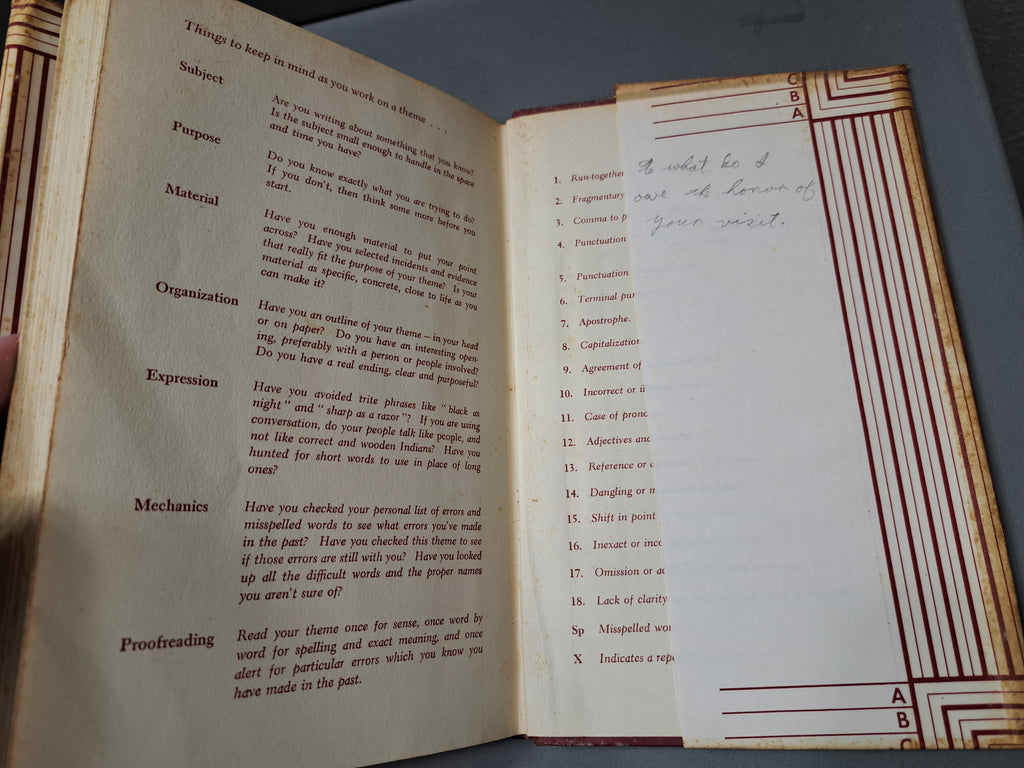 Things to keep in mind as you work on a theme . . .
Subject
Are you writing about something that you know?
Is the subject small enough to handle in the space
and time you have?
Purpose
Do you know exactly what you are trying to do?
If you don't, then think some more before you
start.
Material
Have you enough material to put your point
across? Have you selected incidents and evidence
that really fit the purpose of your theme? Is your
material as specific, concrete, close to life as you
can make it?
Organization
Have you an outline of your theme – in your head
or on paper? Do you have an interesting open-
ing, preferably with a person or people involved?
Do you have a real ending, clear and purposeful?
Expression
Have you avoided trite phrases like "black as
night" and "sharp as a razor"? If you are using
conversation, do your people talk like people, and
not like correct and wooden Indians? Have you
hunted for short words to use in place of long
ones?
Mechanics
Have you checked your personal list of errors and
misspelled words to see what errors you've made
in the past? Have you checked this theme to see
if those errors are still with you? Have you looked
up all the difficult words and the proper names
you aren't sure of?
Proofreading
Read your theme once for sense, once word by
word for spelling and exact meaning, and once
alert for particular errors which you know you
have made in the past.
1. Run-together
2. Fragmentary
3. Comma to p
4. Punctuation
5. Punctuation
6. Terminal pun
7. Apostrophe.
8. Capitalization
9. Agreement of
10. Incorrect or il
11. Case of prono
12. Adjectives and
13. Reference or
14. Dangling or m
15. Shift in point
16. Inexact or inco
17. Omission or
18. Lack of clarity
Sp Misspelled wor
X Indicates a repe
C
B
A
to what do I
owe the honor of
your visit.
A
B
C